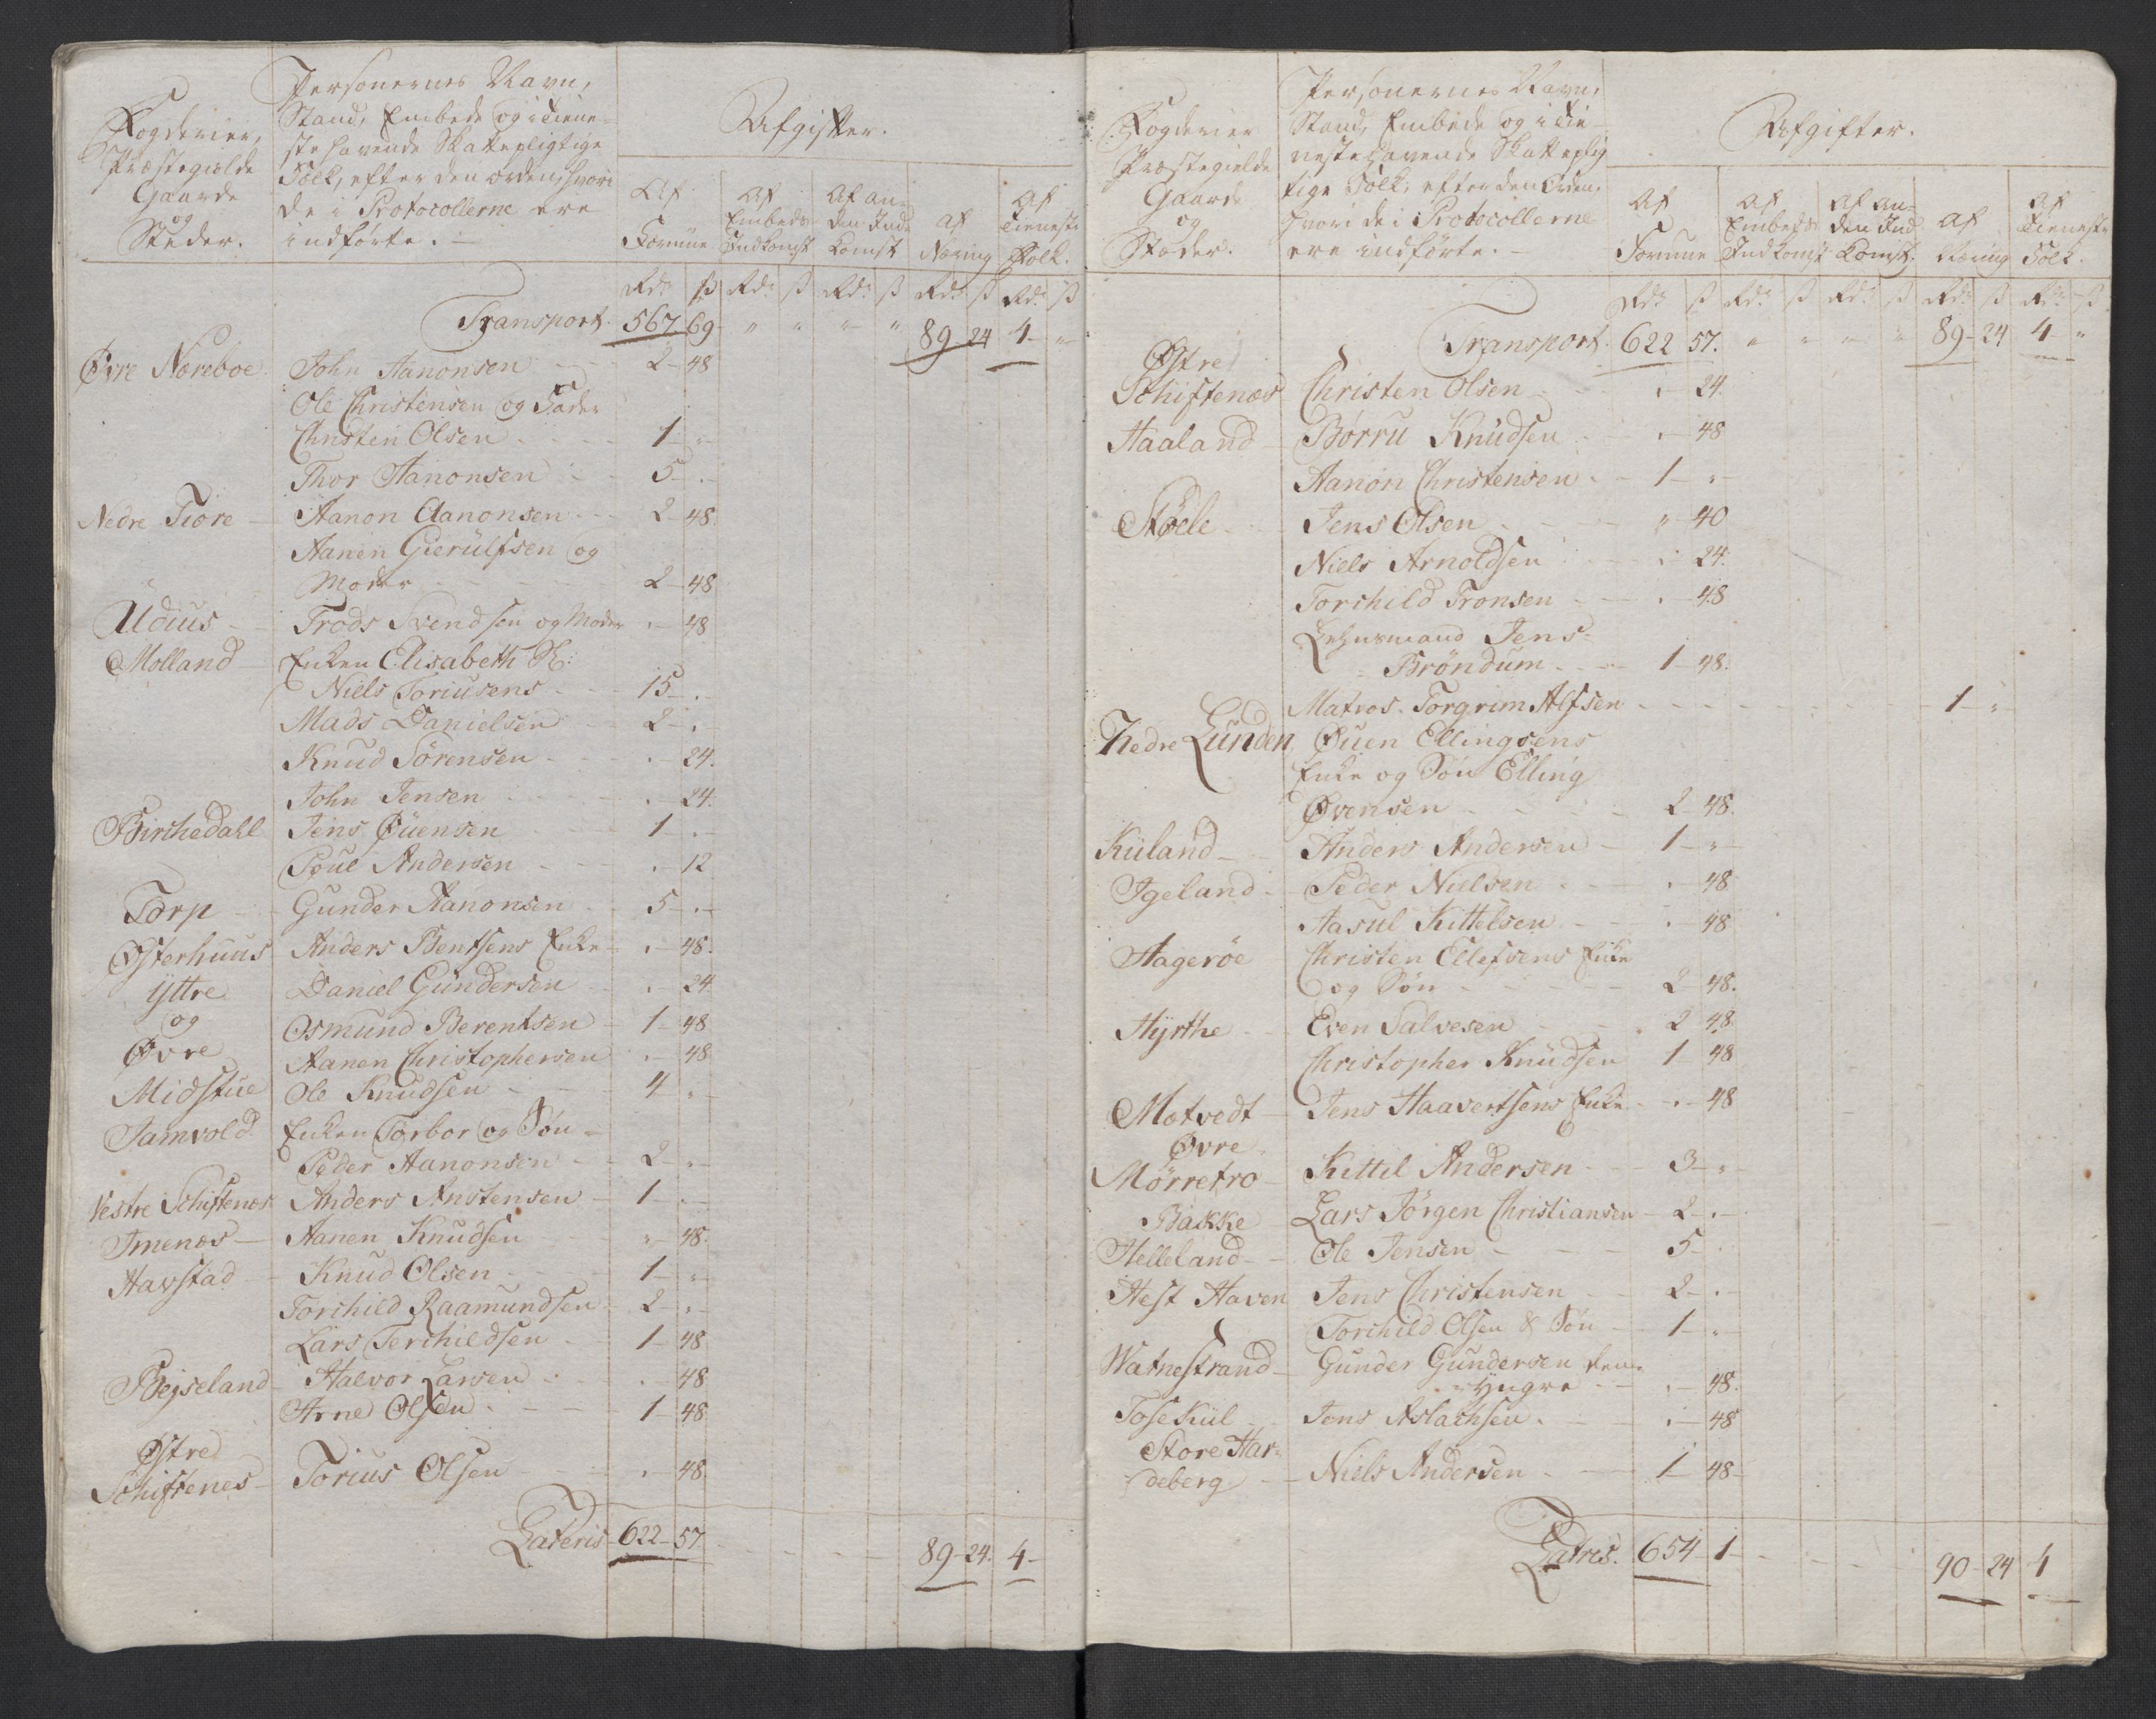 Fogderier,
Præstegielde
Gaarde
og
Stæder.
Personernes Navn,
Stand, Embede og i Tiene-
ste havende Skattepligtige
Folk, efter den Orden, hvori
de i Protocollerne ere
indførte. -
Afgifter.
Af Formue
Af Embeds Indkomst
Af anden Indkomst
Af Næring
Af Tieneste Folk.
Rd. ß Rd. ß Rd. ß Rd. ß Rd. ß
Transport. 567 69 - " " " " 89 24 4 - "
Øvre Næreboe. John Aanonsen - - 2 - 48
Ole Christensen og Fader
Christen Olsen - - - 1 - " -
Thor Aanonsen - - 5 - . -
Nedre Tiore - Aanon Aanonsen - - 2 - 48.
Aanen Gierulfsen og
Moder - - - 2 - 48
Udius - Trods Svendsen og Moder . - 48
Molland - Enken Elisabeth Sl:
Niels Toriusens - - 15 - . -
Mads Danielsen - - 2 - .
Knud Sörensen - - . - 24.
John Jensen - - . - 24.
Birchedahl Jens Øuensen - - 1 - . -
Poul Andersen - - . - 12
Torp - - Gunder Aanonsen - 5 - . -
Østerhuus Anders Bentsens Enke - . - 48.
Yttre Daniel Gundersen - . - 24
og Osmund Berentsen - 1 - 48
Øvre Aanen Christophersen . - 48
Midstue Ole Knudsen - - 4 - " -
Jamvold. Enken Torbor og Søn -
Peder Aanonsen - - 2 - " -
Vestre Schiftenes Anders Anstensen - 1 - . -
Imenes - Aanen Knudsen " - 48.
Havstad - Knud Olsen - - 1 - " -
Torchild Raamundsen - 2 - " -
Lars Terchildsen - 1 - 48
Bejseland - Halvor Larsen - . - 48
Arne Olsen - - - 1 - 48
Østre
Schiftenes - Torius Olsen - - . - 48
Lateris 622 - 57. - - - - 89 - 24. 4 -
Fogderier
Præstegielde
Gaarde
og
Stæder.
Personernes Navn,
Stand, Embede og i Tie-
neste havende Skatteplig
tige Folk, efter den Orden,
hvori de i Protocollerne
ere indførte. -
Afgifter.
Af Formue
Af Embeds Indkomst
Af anden Indkomst.
Af Næring
Af Tieneste Folk.
Rd. ß Rd. ß Rd. ß Rd. ß Rd. ß
Transport. 622 57. " " " " 89 - 24 4 - "
Østre
Schiftenæs Christen Olsen - - . - 24.
Haaland - Börru Knudsen . - 48
Aanon Christensen - - 1 - " -
Støele - - Jens Olsen - - - " 40
Niels Arnoldsen - . - 24.
Torchild Tronsen - - . 48
Lehnsmand Jens
Bröndum - - - 1 - 48.
Matros Torgrim Alfsen - - - - - - - 1 - "
Nedre Lunden Øuen Ellingsens
Enke og Søn Elling
Øvensen - - - 2 - 48.
Kuland - - Anders Andersen - 1 - " -
Igeland - - Peder Nielsen - - . - 48
Aasul Kittelsen - - . - 48
Hagerøe Christen Ellefsens Enke
og Søn - - - 2 - 48.
Hyrthe - - Even Salvesen - . 2 - 48.
Christopher Knudsen 1 48
Motvedt - Jens Haavertsens Enke - . - 48
Øvre
Mörretro - Kittil Andersen - - 3 - "
Bakke Lars Jörgen Christiansen - 2 - . -
Helleland - - Ole Jensen - - - 5 - .
Hest Haven Jens Christensen - - 2 - . -
Torchild Olsen & Søn - 1 - " -
Watnestrand - Gunder Gundersen den
Yngre - - . - 48.
Tosekul - - Jens Aslachsen . - - . - 48
Store Har-
deberg - - Niels Andersen - - 1 - 48 -
Latris. 654 - 1 - - - - - 90 - 24 4